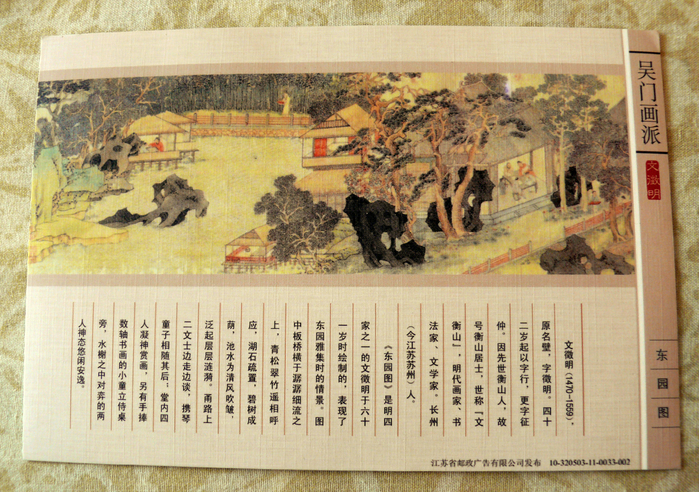 吴门画派
文徵明
东园图
文徵明(1470-1559)，
原名壁，字徵明。四十
二岁起以字行，更字征
仲。因先世衡山人，故
号衡山居士，世称「文
衡山」，明代画家、书
法家、文学家。长州
（今江苏苏州）人。
《东园图》是明四
家之一的文徵明于六十
一岁时绘制的，表现了
东园雅集时的情景。图
中板桥横于潺潺细流之
上，青松翠竹遥相呼
应，湖石疏置，碧树成
荫，池水为清风吹皱，
泛起层层涟漪。甬路上
二文士边走边谈，携琴
童子相随其后；堂内四
人凝神赏画，另有手捧
数轴书画的小童立侍桌
旁，水榭之中对弈的两
人神态悠闲安逸。
江苏省邮政广告有限公司发布 10-320503-11-0033-002